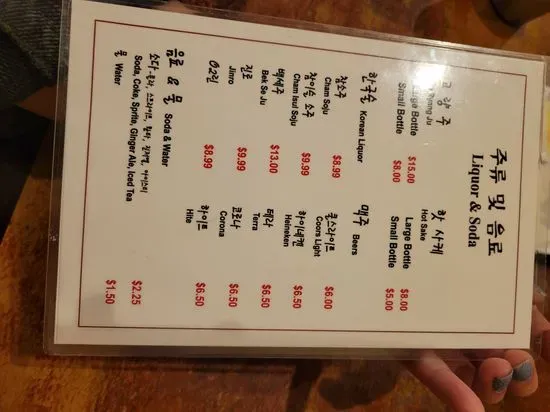 주류 및 음료
Liquor & Soda
량 주
Ju
Large Bottle $15.00
Small Bottle $8.00
한국술 Korean Liquor
참소주
Cham Soju $8.99
참이슬 소주
Cham Isul Soju $9.99
백세주
Bek Se Ju $13.00
진로
Jinro $9.99
O2린 $8.99
핫 사케
Hot Sake
Large Bottle $8.00
Small Bottle $5.00
맥주 Beers
쿨스라이트
Coors Light $6.00
하이네켄
Heineken $6.50
테라
Terra $6.50
코로나
Corona $6.50
하이트
Hite $6.50
음료 & 물 Soda & Water
소다-콜라, 스프라이트, 진저엘, 아이스티
Soda, Coke, Sprite, Ginger Ale, Iced Tea $2.25
물
Water $1.50